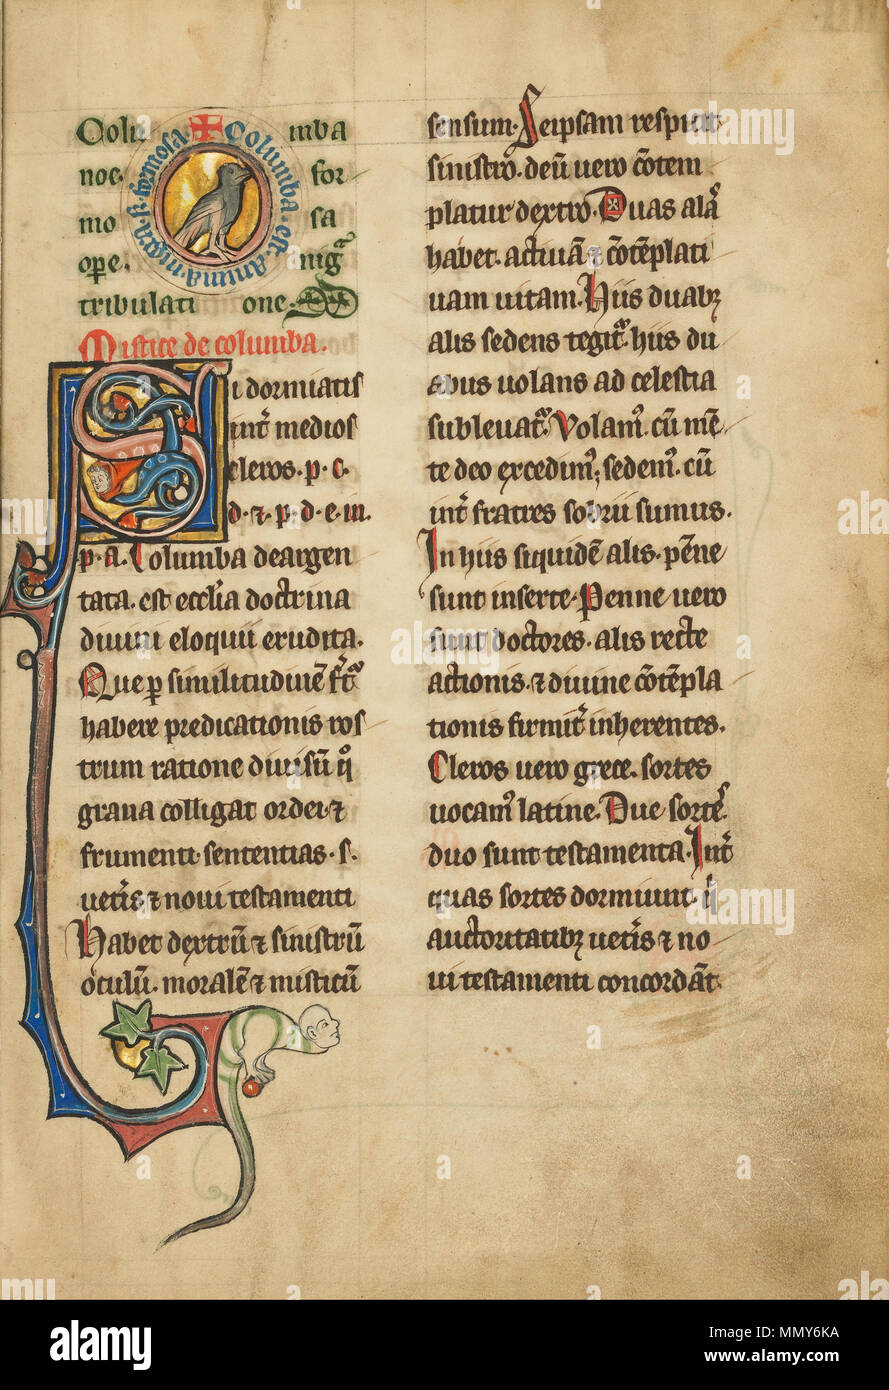 Columba
noe. for
mo sa
ope. nigᵃ
tribulatione.
✠ Columba est anima nigra s̄ formosa.
Mistice de columba.
Si dormiatis
int̄ medios
cleros. p. c.
d. ⁊ p. d. e. in.
p. a. Columba deargen
tata. est eccl̄ia doctrina
diuini eloquii erudita.
Que p similitudinē
habere predicationis ros
trum ratione diuisū q̊
grana colligat ordei ⁊
frumenti sententias. s.
uet̄is ⁊ noui testamenti
Habet dextrū ⁊ sinistrū
oculū. moralē ⁊ misticū
sensum. Seipsam respicit
sinistro. deū uero cōtem
platur dextro. Duas alas
habet. actiuā ⁊ cōtēplati
uam uitam. Hiis duabꝫ
alis sedens tegit᷑. hiis du
abus uolans ad celestia
subleuat᷑. Volamꝰ. cū mē
te deo excedimꝰ; sedemꝰ. cū
int̄ fratres sobrii sumus.
In hiis siquidē alis. pēne
sunt inserte. Penne uero
sunt doctores. alis recte
actionis. ⁊ diuine cōtēpla
tionis firmit̄ inherentes.
Cleros uero grece. sortes
uocamꝰ latine. Due sortes
duo sunt testamenta. Int̄
quas sortes dormiunt. q̄
auctoritatibꝫ uet̄is ⁊ no
ui testamenti concordāt.
alamy
Image ID: MMY6KA
www.alamy.com